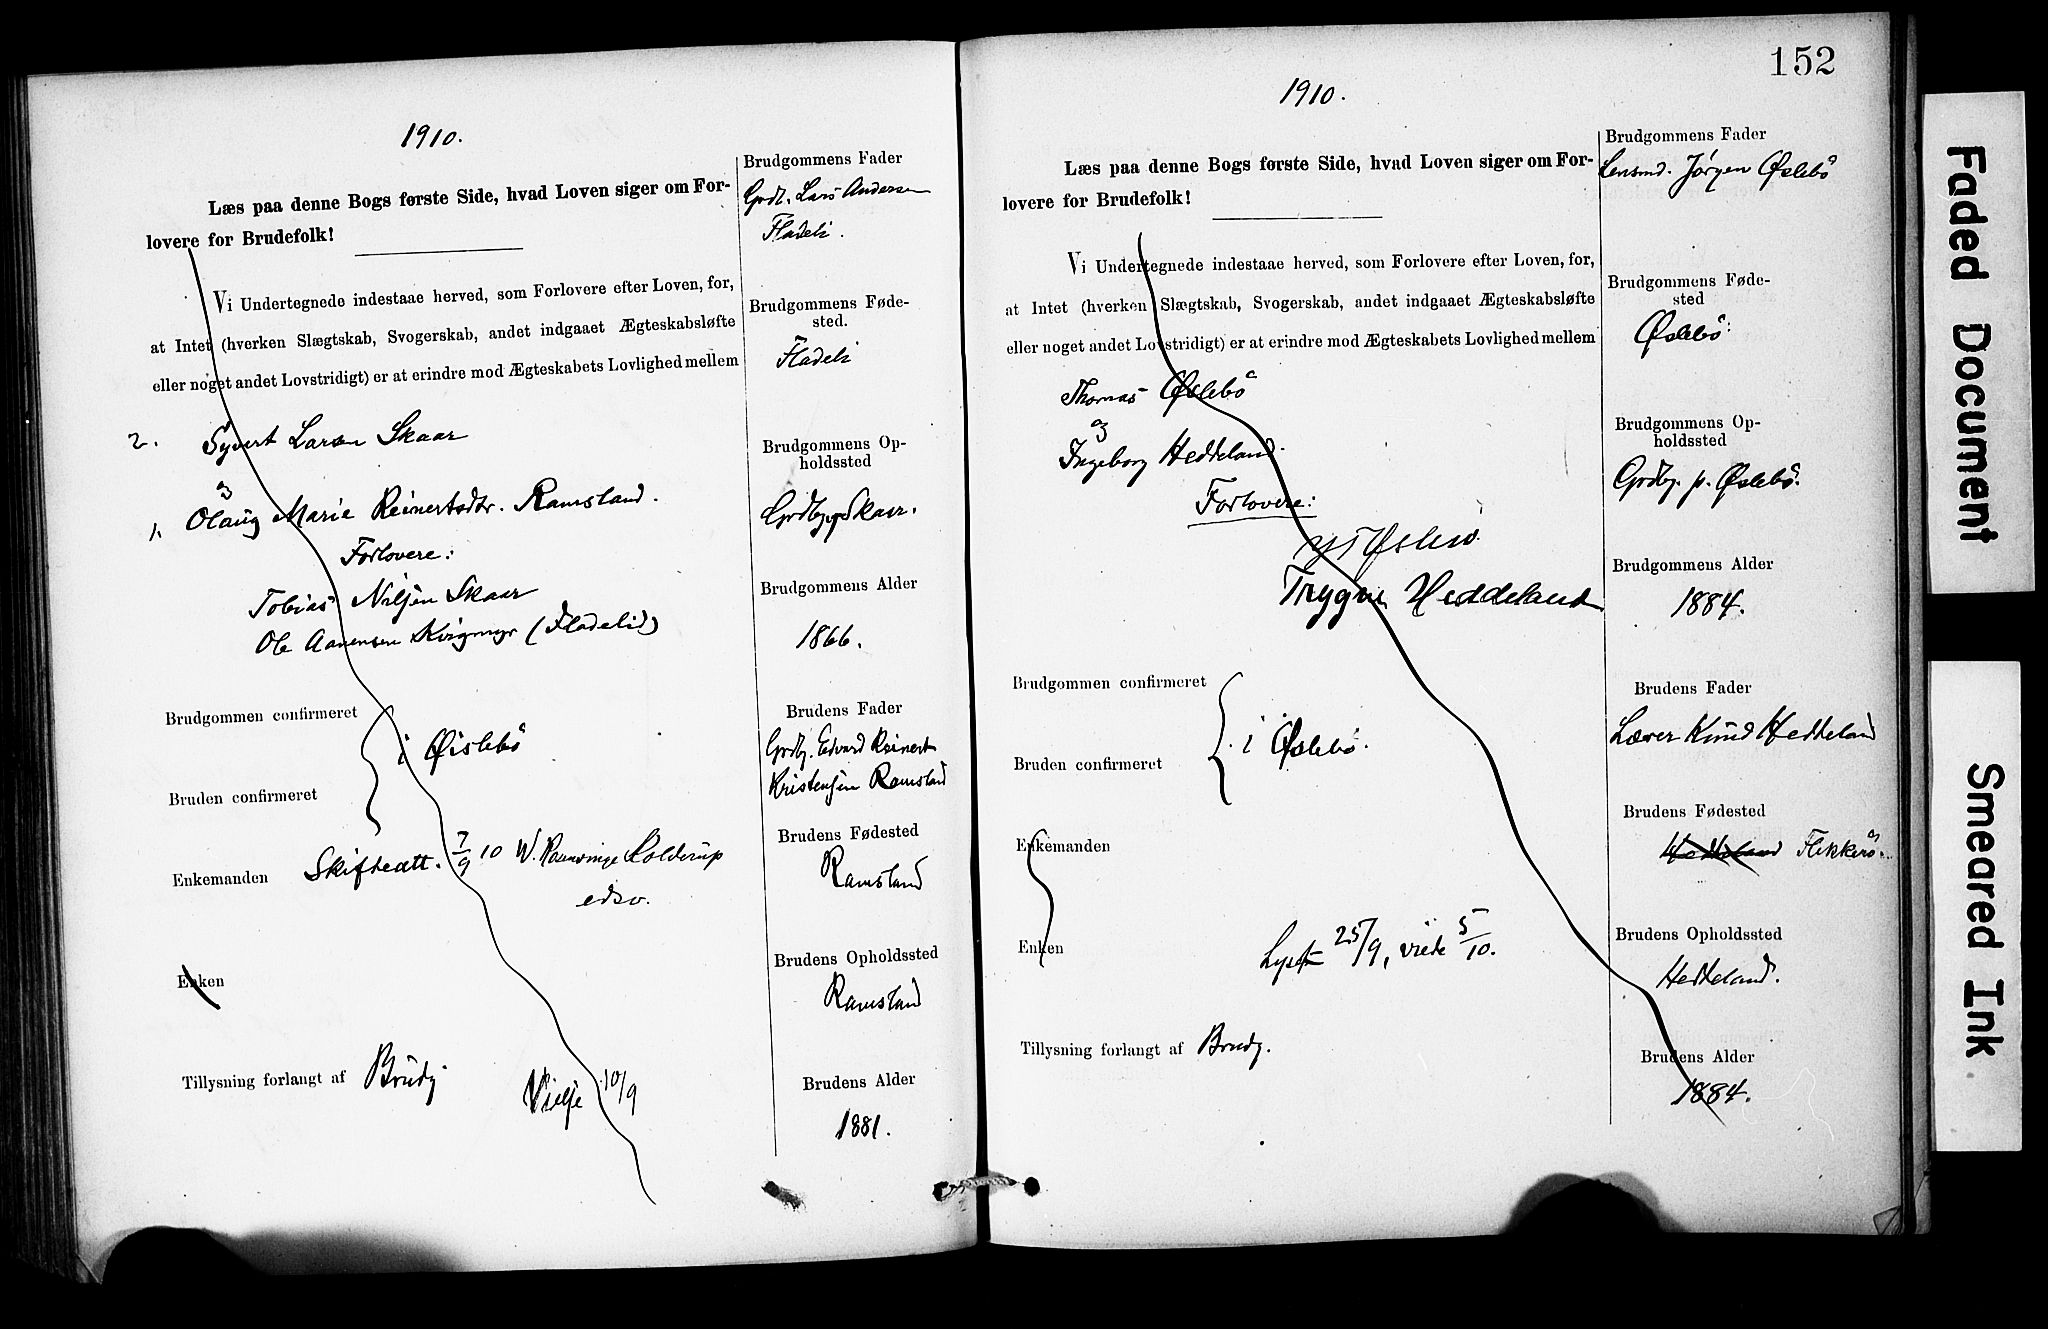 1910.
Læs paa denne Bogs første Side, hvad Loven siger om For-
lovere for Brudefolk!
Vi Undertegnede indestaae herved, som Forlovere efter Loven, for,
at Intet (hverken Slægtskab, Svogerskab, andet indgaaet Ægteskabsløfte
eller noget andet Lovstridigt) er at erindre mod Ægteskabets Lovlighed mellem
2. Syvert Larsen Skaar
og
1. Olaug Marie Reinertsdtr. Ramsland.
Forlovere:
Tobias Nilsen Skaar
Ole Aanensen Kvigmyr (Fladelid)
Brudgommen confirmeret
i Øislebø
Bruden confirmeret
Enkemanden Skifteatt. 7/9 10 W. Koldërup
edsv.
Enken
Tillysning forlangt af Brudg.
Vielse 10/9
Brudgommens Fader
Grdb. Lars Andersen
Fladeli.
Brudgommens Føde-
sted.
Fladeli
Brudgommens Op-
holdssted
Grdbg. Skaar.
Brudgommens Alder
1866.
Brudens Fader
Grdbg. Edvard Reinert
Kristensen Ramsland
Brudens Fødested
Ramsland
Brudens Opholdssted
Ramsland
Brudens Alder
1881.
152
1910.
Læs paa denne Bogs første Side, hvad Loven siger om For-
lovere for Brudefolk!
Vi Undertegnede indestaae herved, som Forlovere efter Loven, for,
at Intet (hverken Slægtskab, Svogerskab, andet indgaaet Ægteskabsløfte
eller noget andet Lovstridigt) er at erindre mod Ægteskabets Lovlighed mellem
Thomas Øslebø
og
Ingeborg Heddeland.
Forlovere:
Øslebø.
Trygve Heddeland
Brudgommen confirmeret
i Øslebø.
Bruden confirmeret
Enkemanden
Enken
Lyst 25/9, viede 5/10.
Tillysning forlangt af Brudg.
Brudgommens Fader
Lensmd. Jørgen Øslebø
Brudgommens Føde-
sted
Øslebø.
Brudgommens Op-
holdssted
Grdbg. p. Øslebø.
Brudgommens Alder
1884.
Brudens Fader
Lærer Knud Heddeland
Brudens Fødested
Heddeland Flekkerø.
Brudens Opholdssted
Heddeland.
Brudens Alder
1884.
Faded Document
Smeared Ink